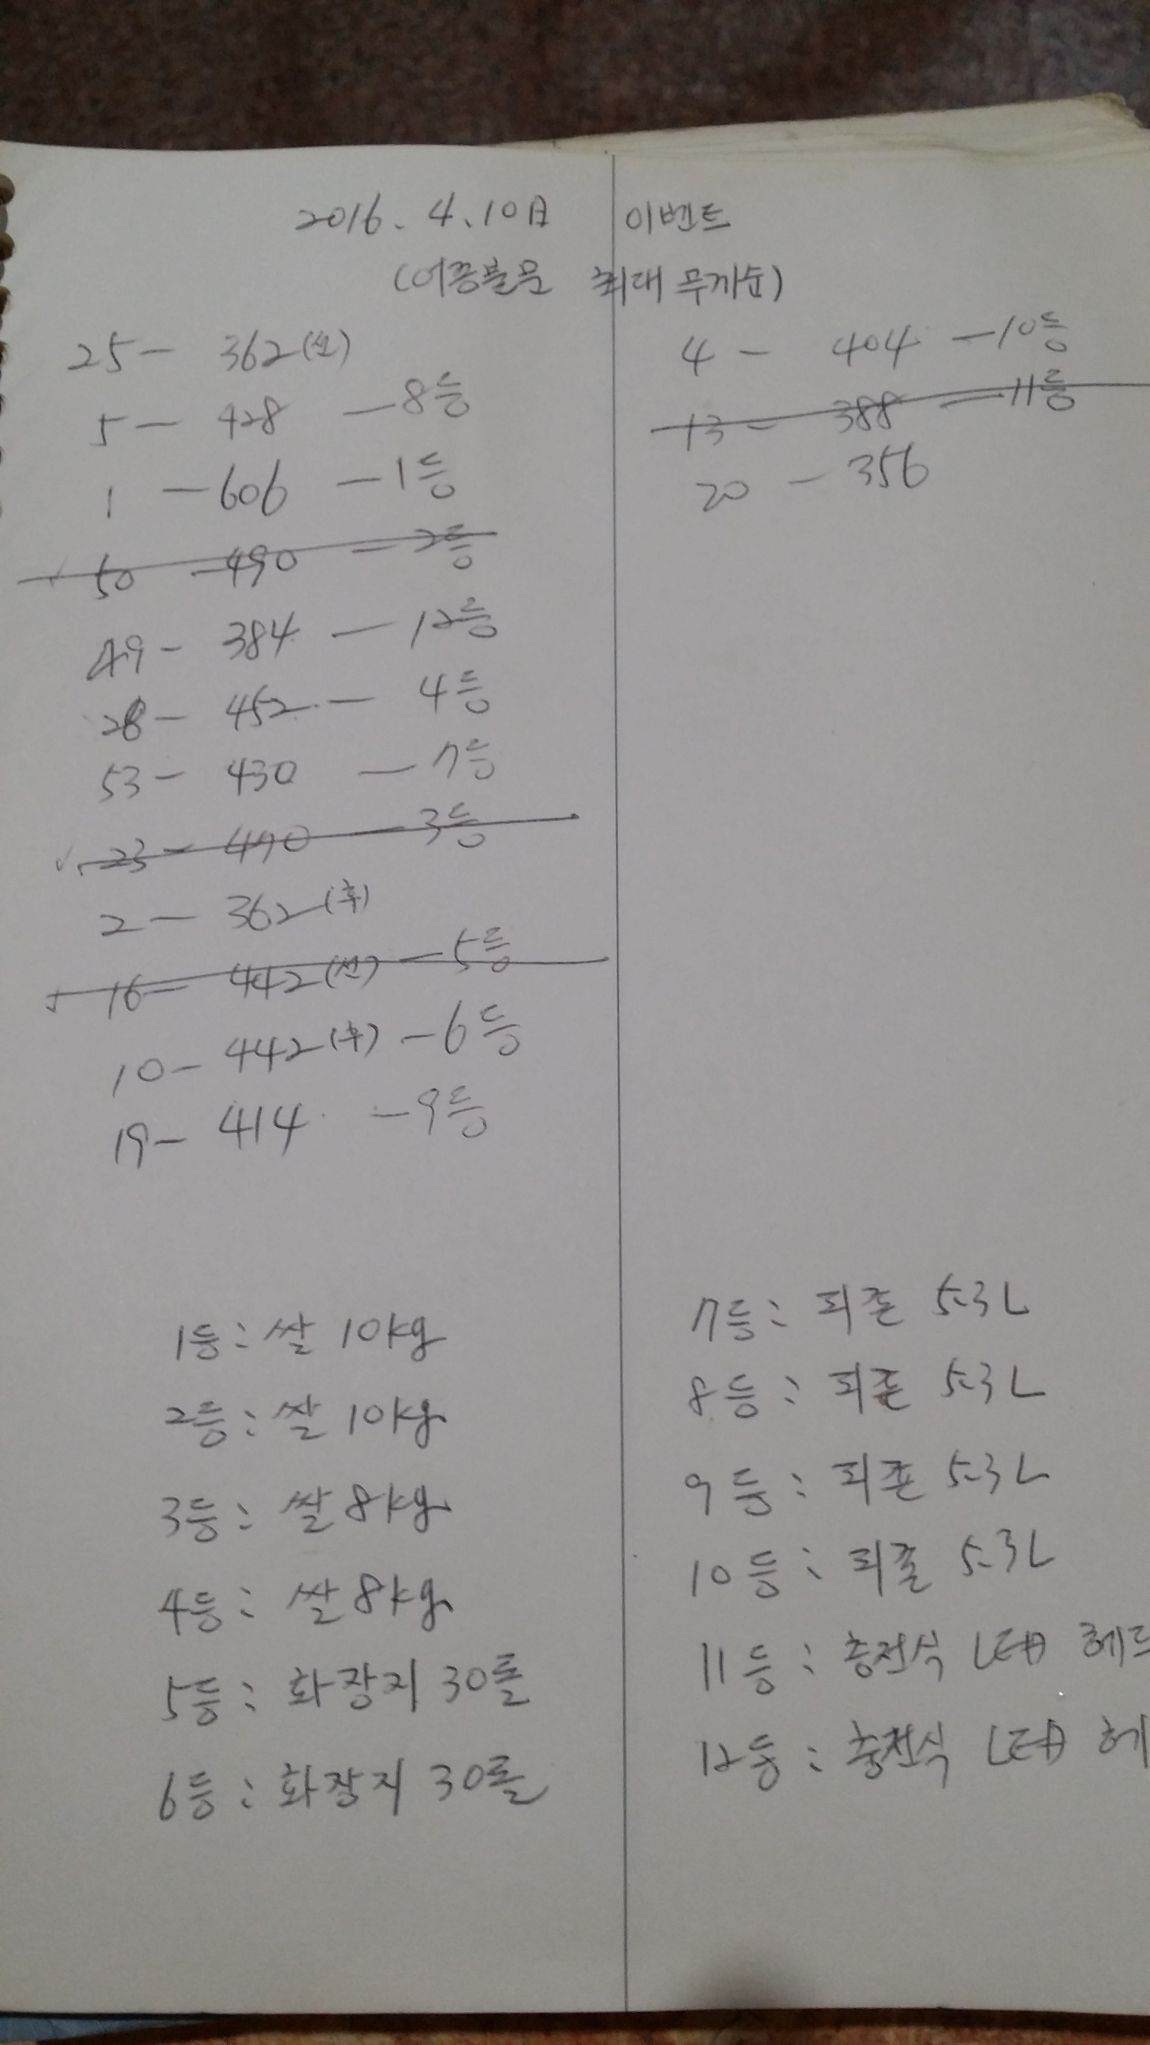 2016. 4. 10日 이벤트
(어종불문 최대 무게순)
25 - 362 (선)
5 - 428 - 8등
1 - 606 - 1등
50 - 490 - 2등
49 - 384 - 12등
28 - 452 - 4등
53 - 430 - 7등
23 - 490 - 3등
2 - 362 (후)
16 - 442 (선) - 5등
10 - 442 (후) - 6등
19 - 414 - 9등
4 - 404 - 10등
13 - 388 - 11등
20 - 356
1등: 쌀 10kg
2등: 쌀 10kg
3등: 쌀 8kg
4등: 쌀 8kg
5등: 화장지 30롤
6등: 화장지 30롤
7등: 피죤 5.3L
8등: 피죤 5.3L
9등: 피죤 5.3L
10등: 피죤 5.3L
11등: 충전식 LED 헤드
12등: 충전식 LED 헤